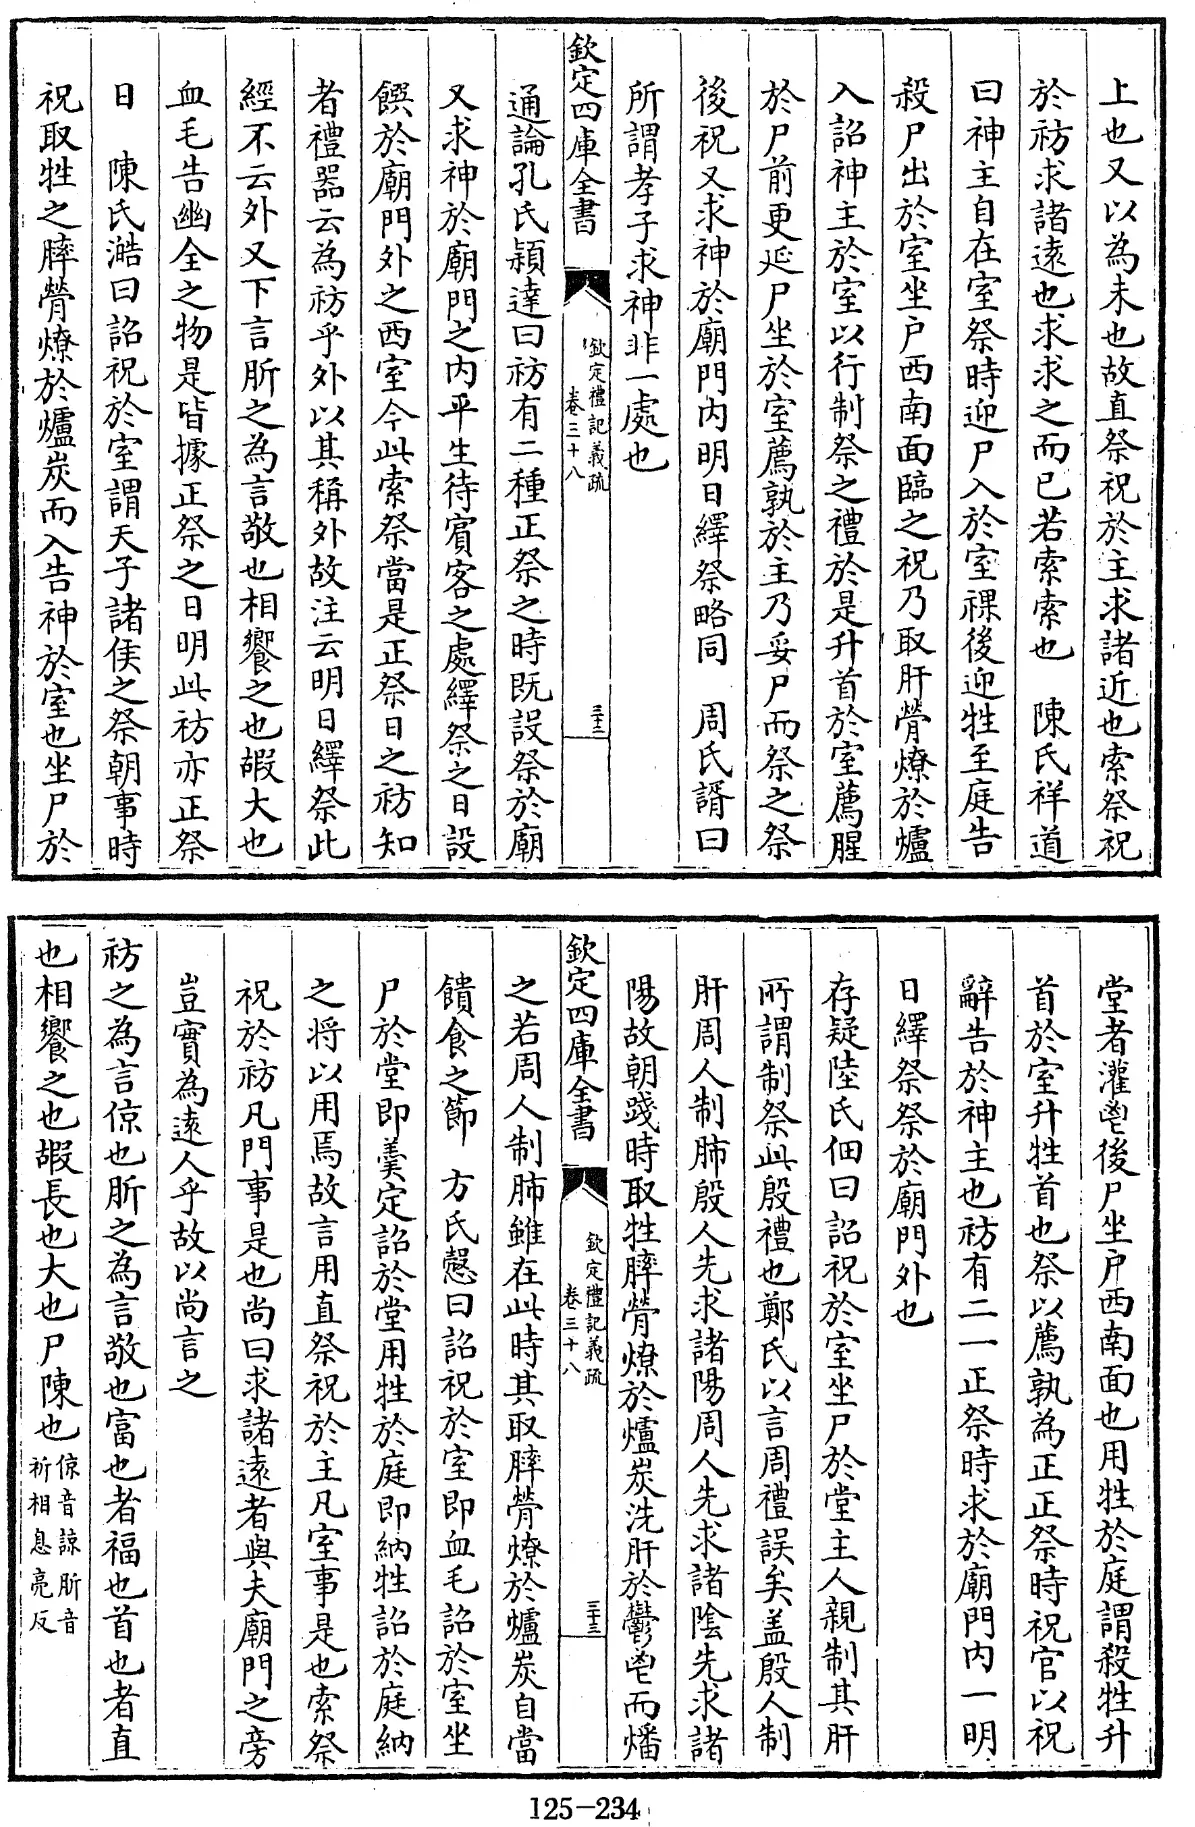 上也又以為未也故直祭祝於主求諸近也索祭祝
於祊求諸遠也求求之而已若索索也　陳氏祥道
曰神主自在室祭時迎尸入於室祼後迎牲至庭告
殺尸出於室坐户西南面臨之祝乃取肝膋燎於爐
入詔神主於室以行制祭之禮於是升首於室薦腥
於尸前更延尸坐於室薦孰於主乃妥尸而祭之祭
後祝又求神於廟門内明日繹祭略同　周氏諝曰
所謂孝子求神非一處也
欽定四庫全書
欽定禮記義疏
卷三十八
三十二
通論孔氏穎達曰祊有二種正祭之時既設祭於廟
又求神於廟門之内平生待賓客之處繹祭之日設
饌於廟門外之西室今此索祭當是正祭日之祊知
者禮器云為祊乎外以其稱外故注云明日繹祭此
經不云外又下言肵之為言敬也相饗之也嘏大也
血毛告幽全之物是皆據正祭之日明此祊亦正祭
日　陳氏澔曰詔祝於室謂天子諸侯之祭朝事時
祝取牲之膟膋燎於爐炭而入告神於室也坐尸於
堂者灌鬯後尸坐户西南面也用牲於庭謂殺牲升
首於室升牲首也祭以薦孰為正正祭時祝官以祝
辭告於神主也祊有二一正祭時求於廟門内一明
日繹祭祭於廟門外也
存疑陸氏佃曰詔祝於室坐尸於堂主人親制其肝
所謂制祭此殷禮也鄭氏以言周禮誤矣盖殷人制
肝周人制肺殷人先求諸陽周人先求諸陰先求諸
陽故朝踐時取牲膟膋燎於爐炭洗肝於鬱鬯而燔
欽定四庫全書
欽定禮記義疏
卷三十八
三十三
之若周人制肺雖在此時其取膟膋燎於爐炭自當
饋食之節　方氏慤曰詔祝於室即血毛詔於室坐
尸於堂即羮定詔於堂用牲於庭即納牲詔於庭納
之将以用焉故言用直祭祝於主凡室事是也索祭
祝於祊凡門事是也尚曰求諸遠者與夫廟門之旁
豈實為遠人乎故以尚言之
祊之為言倞也肵之為言敬也富也者福也首也者直
也相饗之也嘏長也大也尸陳也倞音諒肵音
祈相息亮反
125-234